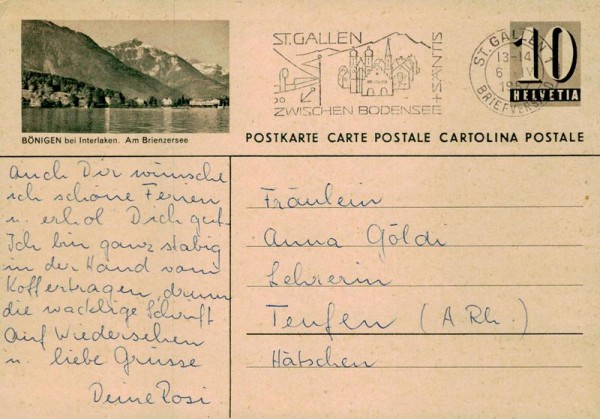 ST. GALLEN
+ SÄNTIS
ZWISCHEN BODENSEE
ST. GALLEN
13-14
6. IV.
BRIEFVERSAND
10
HELVETIA
BÖNIGEN bei Interlaken. Am Brienzersee
POSTKARTE CARTE POSTALE CARTOLINA POSTALE
Auch Dir wünsche
ich schöne Ferien
u. erhol Dich gut.
Ich bin ganz stabig
in der Hand vom
Koffertragen, drum
die wacklige Schrift
Auf Wiedersehen
u. liebe Grüsse
Deine Rosi
Fräulein
Anna Göldi
Lehrerin
Teufen (A Rh.)
Hätschen